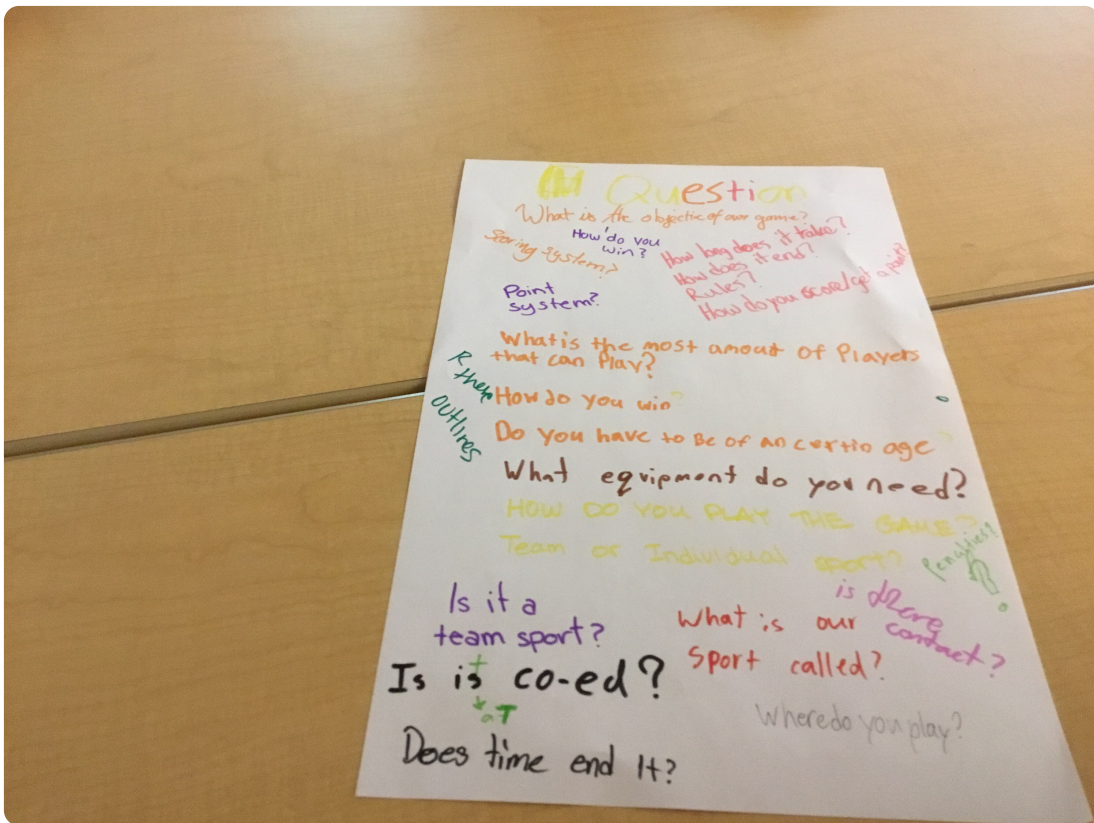 Question
What is the objectic of our game?
How do you
win?
Scoring system?
How long does it take?
How does it end?
Rules?
How do you score/get a point?
Point
system?
What is the most amout of Players
that can Play?
R there
outlines
How do you win?
Do you have to Be of an certin age
What equipment do you need?
HOW DO YOU PLAY THE GAME?
Team or Individual sport?
Penalties?
is there
contact?
Is it a
team sport?
What is our
sport called?
Is is co-ed?
t
Where do you play?
Does time end It?